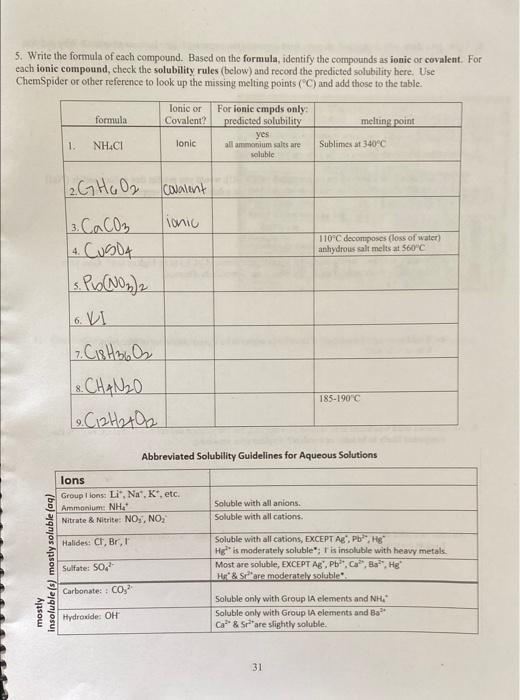 5. Write the formula of each compound. Based on the formula, identify the compounds as ionic or covalent. For
each ionic compound, check the solubility rules (below) and record the predicted solubility here. Use
ChemSpider or other reference to look up the missing melting points (°C) and add those to the table.
formula
Ionic or Covalent?
For ionic cmpds only: predicted solubility
melting point
1. NH₄Cl
Ionic
yes
all ammonium salts are
soluble
Sublimes at 340°C
2. C7H6O2 covalent
3. CaCO3 ionic
4. CuSO4
110°C decomposes (loss of water)
anhydrous salt melts at 560°C
5. Pb(NO3)2
6. KI
7. C18H36O2
8. CH4N2O
9. C12H24O2
185-190°C
Abbreviated Solubility Guidelines for Aqueous Solutions
mostly insoluble (s) mostly soluble (aq)
Ions
Group I ions: Li⁺, Na⁺, K⁺, etc.
Ammonium: NH₄⁺
Soluble with all anions.
Nitrate & Nitrite: NO₃⁻, NO₂⁻
Soluble with all cations.
Halides: Cl⁻, Br⁻, I⁻
Soluble with all cations, EXCEPT Ag⁺, Pb²⁺, Hg
Hg²⁺ is moderately soluble*; I⁻ is insoluble with heavy metals.
Sulfate: SO₄²⁻
Most are soluble, EXCEPT Ag⁺, Pb²⁺, Ca²⁺, Ba²⁺, Hg
Hg⁺ & Sr²⁺ are moderately soluble*.
Carbonate: : CO₃²⁻
Soluble only with Group IA elements and NH₄⁺
Hydroxide: OH⁻
Soluble only with Group IA elements and Ba²⁺
Ca²⁺ & Sr²⁺ are slightly soluble.
31